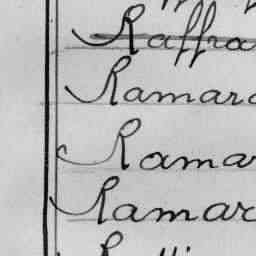 Raffra
Ramara
Ramar
Ramar